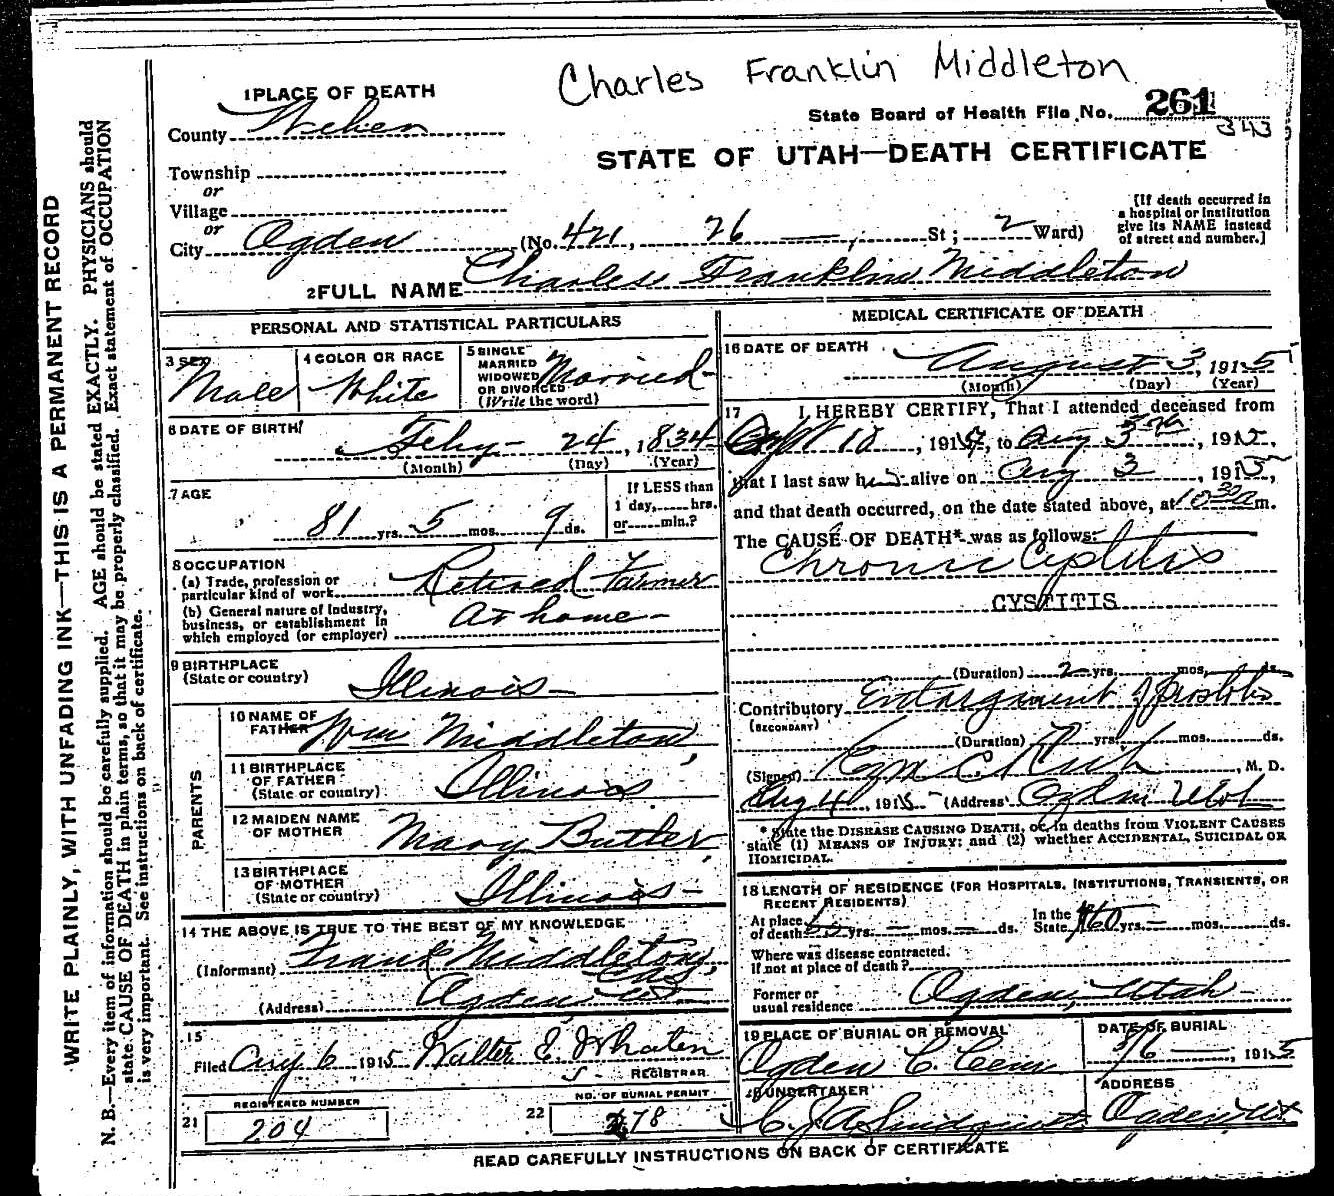 Charles Franklin Middleton
1 PLACE OF DEATH
State Board of Health File No. 261
343
County Weber
STATE OF UTAH—DEATH CERTIFICATE
Township
or
Village
or
City Ogden (No. 421, 26 St; 2 Ward)
[If death occurred in a hospital or institution give its NAME instead of street and number.]
2 FULL NAME Charles Franklin Middleton
PERSONAL AND STATISTICAL PARTICULARS
3 SEX Male
4 COLOR OR RACE White
5 SINGLE MARRIED WIDOWED OR DIVORCED (Write the word) Married
6 DATE OF BIRTH
Feby 24, 1834
(Month) (Day) (Year)
7 AGE
81 yrs. 5 mos. 9 ds.
If LESS than
1 day, hrs.
or min.?
8 OCCUPATION
(a) Trade, profession or particular kind of work Retired Farmer
(b) General nature of industry, business, or establishment in which employed (or employer) At home
9 BIRTHPLACE
(State or country) Illinois
PARENTS
10 NAME OF FATHER Wm Middleton
11 BIRTHPLACE OF FATHER (State or country) Illinois
12 MAIDEN NAME OF MOTHER Mary Butler
13 BIRTHPLACE OF MOTHER (State or country) Illinois
14 THE ABOVE IS TRUE TO THE BEST OF MY KNOWLEDGE
(Informant) Frank Middleton
(Address) Ogden Ut
15
Filed Aug 6 1915 Walter E. Whalen
REGISTRAR
21 REGISTERED NUMBER
204
22 NO. OF BURIAL PERMIT
278
MEDICAL CERTIFICATE OF DEATH
16 DATE OF DEATH
August 3, 1915
(Month) (Day) (Year)
17 I HEREBY CERTIFY, That I attended deceased from
18, 191 , to Aug 3, 1915,
that I last saw h alive on Aug 3, 1915,
and that death occurred, on the date stated above, at 10 30 a m.
The CAUSE OF DEATH* was as follows:
Chronic Cystitis
CYSTITIS
(Duration) 2 yrs. mos. ds.
Contributory Enlargment of prostate
(SECONDARY)
(Duration) yrs. mos. ds.
(Signed) C. Rich, M. D.
Aug 4, 1915 (Address) Ogden Utah
* State the DISEASE CAUSING DEATH, or, in deaths from VIOLENT CAUSES
state (1) MEANS OF INJURY; and (2) whether ACCIDENTAL, SUICIDAL OR
HOMICIDAL.
18 LENGTH OF RESIDENCE (FOR HOSPITALS, INSTITUTIONS, TRANSIENTS, OR
RECENT RESIDENTS)
At place of death yrs. mos. ds. In the State 60 yrs. mos. ds.
Where was disease contracted,
if not at place of death?
Former or usual residence Ogden, Utah
19 PLACE OF BURIAL OR REMOVAL
Ogden C. Cem
DATE OF BURIAL
8/6, 1915
20 UNDERTAKER
C. J. A. Lindquist
ADDRESS
Ogden, Ut
READ CAREFULLY INSTRUCTIONS ON BACK OF CERTIFICATE
WRITE PLAINLY, WITH UNFADING INK—THIS IS A PERMANENT RECORD
N. B.—Every item of information should be carefully supplied. AGE should be stated EXACTLY. PHYSICIANS should
state CAUSE OF DEATH in plain terms, so that it may be properly classified. Exact statement of OCCUPATION
is very important. See instructions on back of certificate.